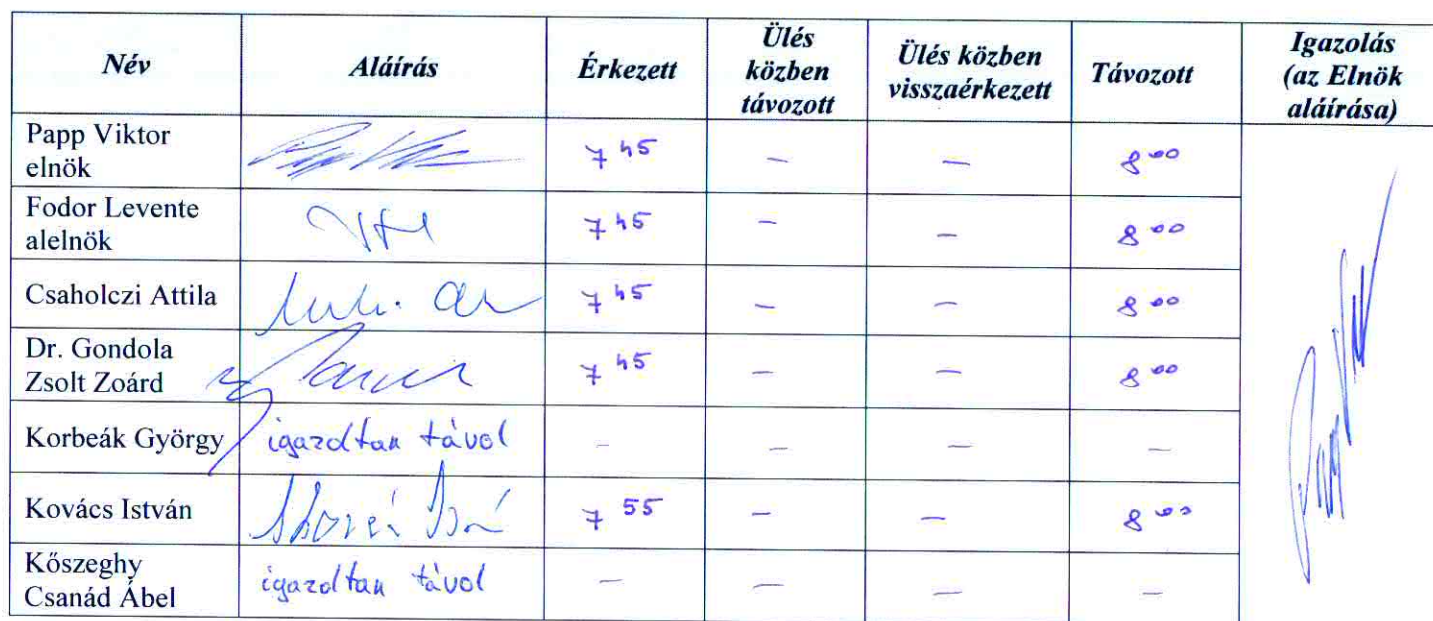 Név Aláírás Érkezett Ülés közben távozott Ülés közben visszaérkezett Távozott Igazolás (az Elnök aláírása)
Papp Viktor elnök 7 45 — — 8 00
Fodor Levente alelnök 7 45 — — 8 00
Csaholczi Attila 7 45 — — 8 00
Dr. Gondola Zsolt Zoárd 7 45 — — 8 00
Korbeák György igazoltan távol — — — —
Kovács István 7 55 — — 8 00
Kőszeghy Csanád Ábel igazoltan távol — — — —